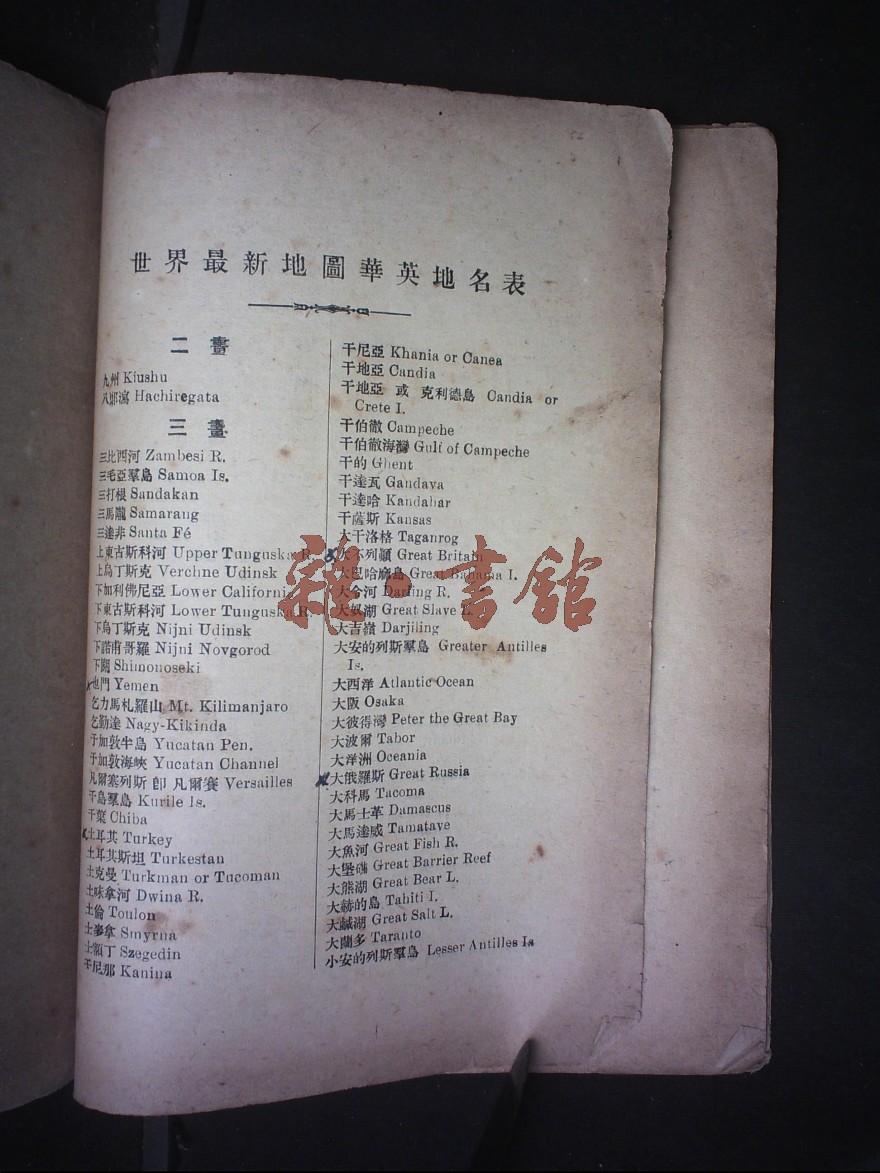 世界最新地圖華英地名表
二畫
九州 Kiushu
八郎瀉 Hachiregata
三畫
三比西河 Zambesi R.
三毛亞羣島 Samoa Is.
三打根 Sandakan
三馬隴 Samarang
三達非 Santa Fé
上東古斯科河 Upper Tunguska R.
上烏丁斯克 Verchne Udinsk
下加利佛尼亞 Lower California
下東古斯科河 Lower Tunguska R.
下烏丁斯克 Nijni Udinsk
下諾甫哥羅 Nijni Novgorod
下關 Shimonoseki
也門 Yemen
乞力馬札羅山 Mt. Kilimanjaro
乞勤達 Nagy-Kikinda
于加敦半島 Yucatan Pen.
于加敦海峽 Yucatan Channel
凡爾塞列斯 卽 凡爾賽 Versailles
千島羣島 Kurile Is.
千葉 Chiba
土耳其 Turkey
土耳其斯坦 Turkestan
土克曼 Turkman or Tucoman
土味拿河 Dwina R.
土倫 Toulon
土麥拿 Smyrna
士額丁 Szegedin
干尼那 Kanina
干尼亞 Khania or Canea
干地亞 Candia
干地亞 或 克利德島 Candia or
Crete I.
干伯徹 Campeche
干伯徹海灣 Gulf of Campeche
干的 Ghent
干達瓦 Gandava
干達哈 Kandahar
干薩斯 Kansas
大干洛格 Taganrog
大不列顛 Great Britain
大巴哈麻島 Great Bahama I.
大令河 Darling R.
大奴湖 Great Slave L.
大吉嶺 Darjiling
大安的列斯羣島 Greater Antilles
Is.
大西洋 Atlantic Ocean
大阪 Osaka
大彼得灣 Peter the Great Bay
大波爾 Tabor
大洋洲 Oceania
大俄羅斯 Great Russia
大科馬 Tacoma
大馬士革 Damascus
大馬達威 Tamatave
大魚河 Great Fish R.
大堡礁 Great Barrier Reef
大熊湖 Great Bear L.
大赫的島 Tahiti I.
大鹹湖 Great Salt L.
大蘭多 Taranto
小安的列斯羣島 Lesser Antilles Is
雜·書館